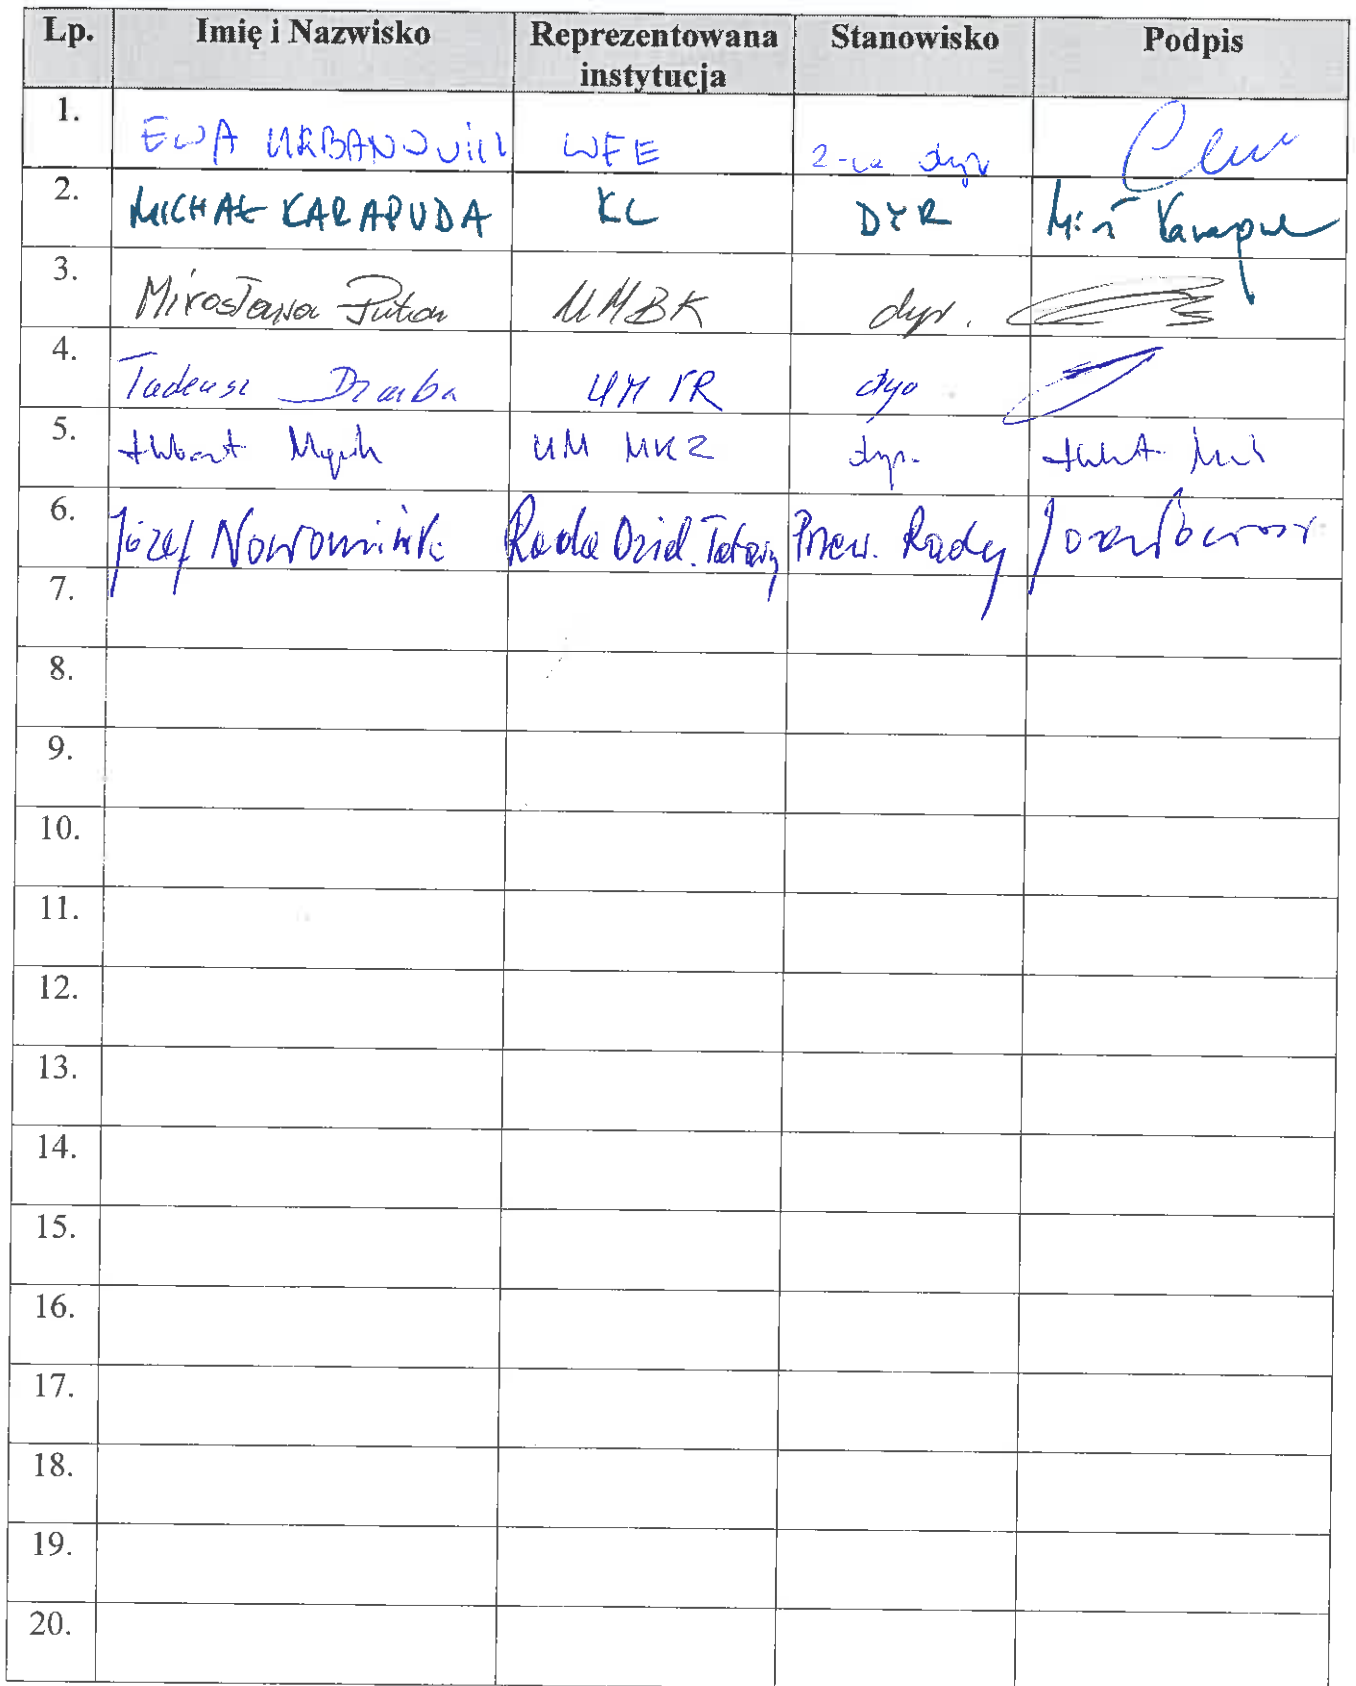 Lp. Imię i Nazwisko Reprezentowana instytucja Stanowisko Podpis
1. EWA URBANOWICZ WFE Z-ca dyr
2. MICHAŁ KARAPUDA KL DYR
3. Mirosława Puton UMBK dyr.
4. Tadeusz Dziuba UM dyr
5. Hubert UM MKZ dyr.
6. Józef Nowomiński Rada Dziel. Tatary Przew. Rady
7.
8.
9.
10.
11.
12.
13.
14.
15.
16.
17.
18.
19.
20.